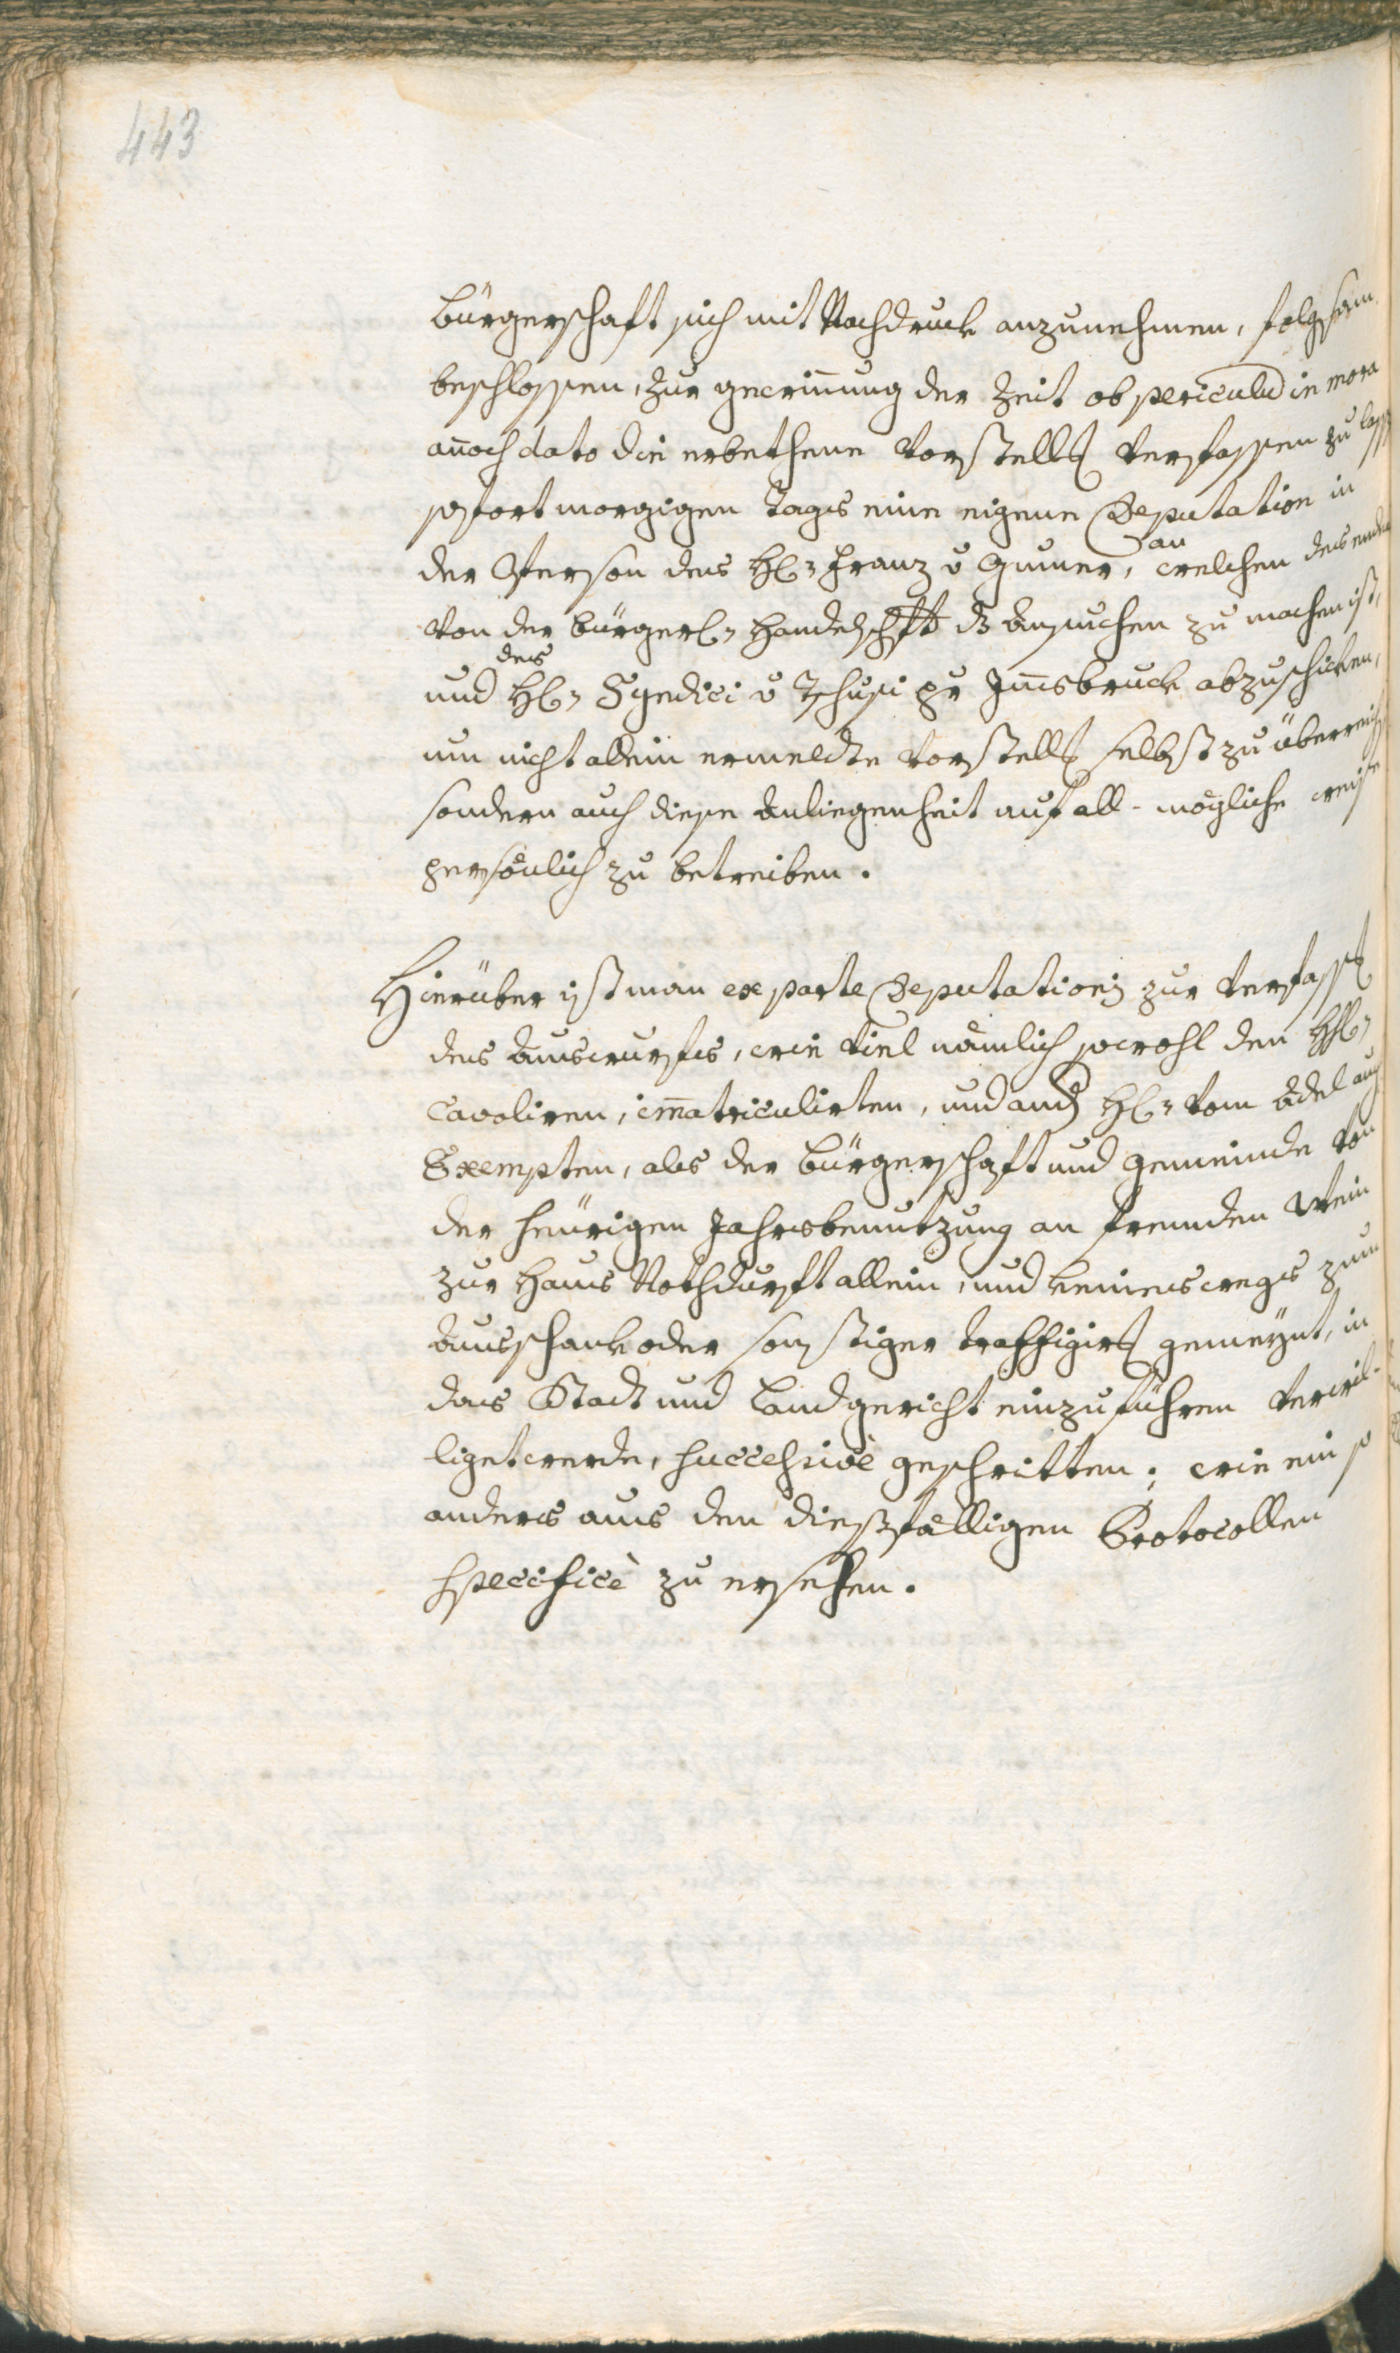 443
Bürgerschaft sich mit Nachdruck anzunehmen, folgsam
beschlossen, zur gewinnung der Zeit ob periculum in mora
annoch dato die erbethene Vorstellg verfassen zu lass
sofort morgigen Tags eine eigene Deputation in
der Person des H: Franz v Gumer, an welchen des ends
von der Bürgerl: Handelschft dz Ansuchen zu machen ist,
und des H: Syndici v Tschusi pr Innsbruck abzuschicken,
um nicht allein ermeldte Vorstellg selbst zu überreich
sondern auch diese Anliegenheit auf all- mögliche weise
persönlich zu betreiben.
Hierüber ist man ex parte Deputationis zur verfassg
des Auswurfes, wie viel nämlich sowohl den HH:
Cavaliren, immatriculirten, und andr H: vom Adel auch
Exempten, als der Bürgerschaft und Gemeinde von
der heürigen Jahrsbenutzung an fremden Wein
zur Haus Nothdurft allein, und keineswegs zum
Ausschank oder sonstiger traffigirg gemeynt, in
das Stadt und Landgericht einzuführen verwil-
liget werde, successivè geschritten; wie ein so
anders aus den dießfälligen Protocollen
specificè zu ersehen.